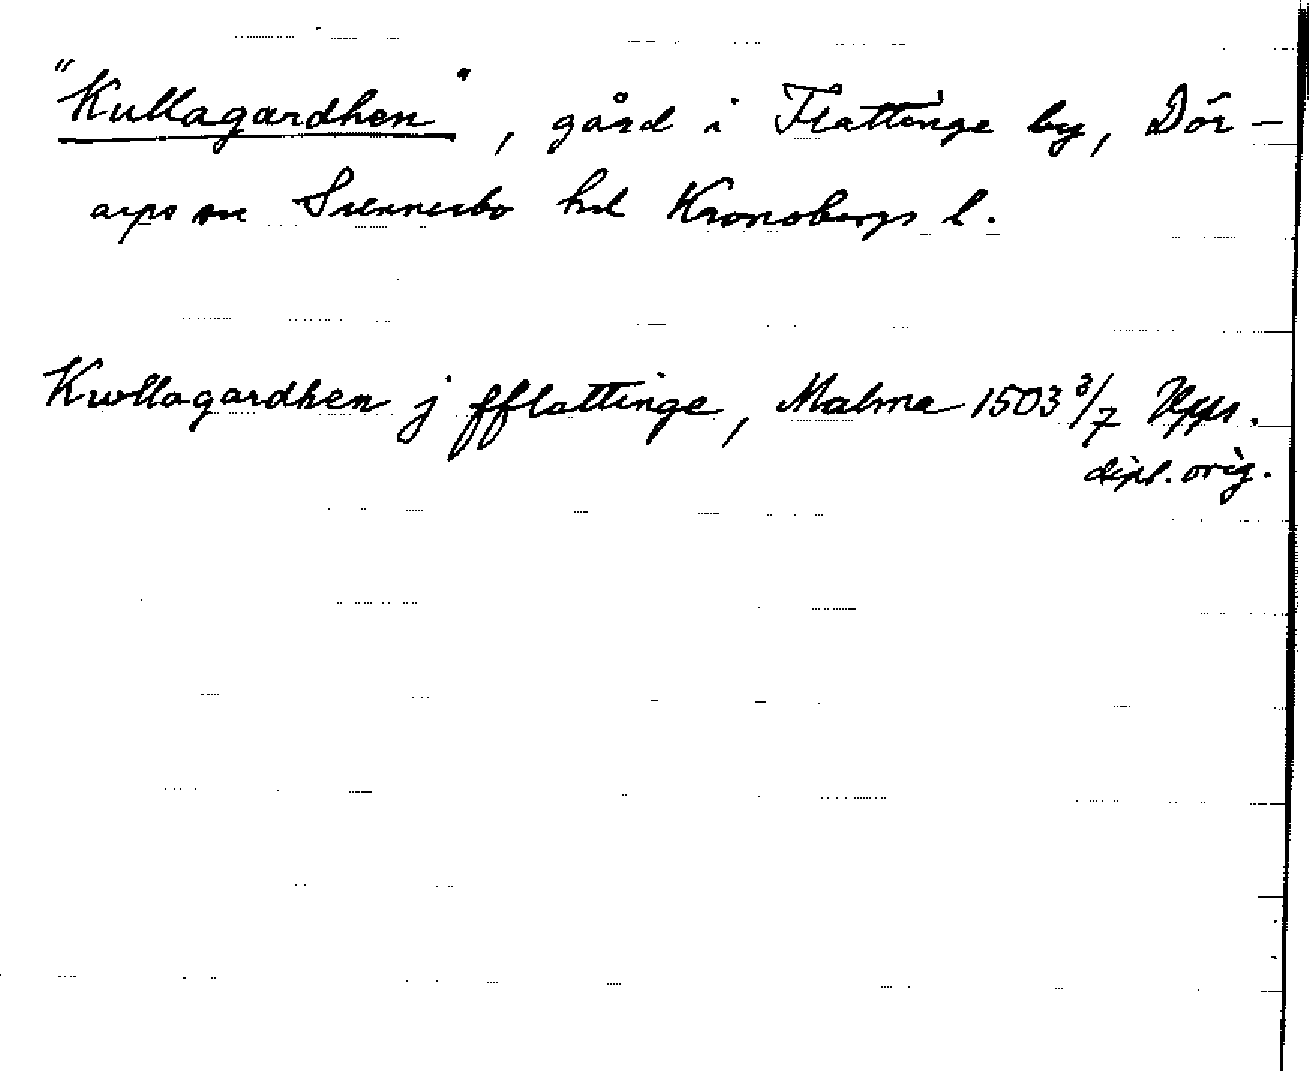 "Kullagardhen", gård i Flattinge by, Dör-
arps sn Sunnerbo hd Kronobergs l.
Kwllagardhen j fflattinge, Malma 1503 3/7 Upps.
dipl. orig.